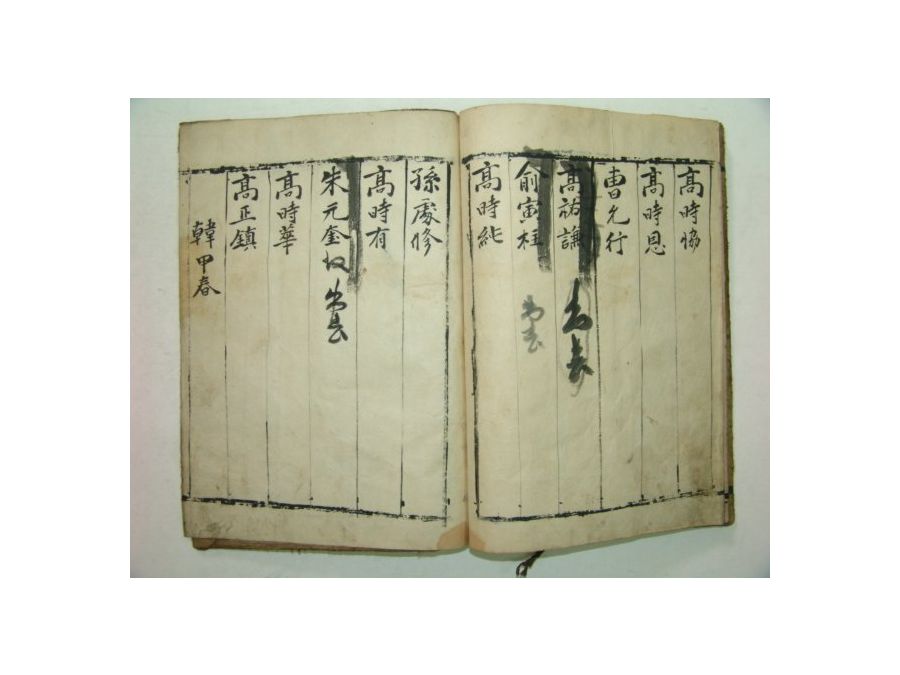 高時協
高時恩
曺允行
高祐謙
俞寅柱
高時能
孫處修
高時有
朱元奎
高時華
高正鎮
韓甲春